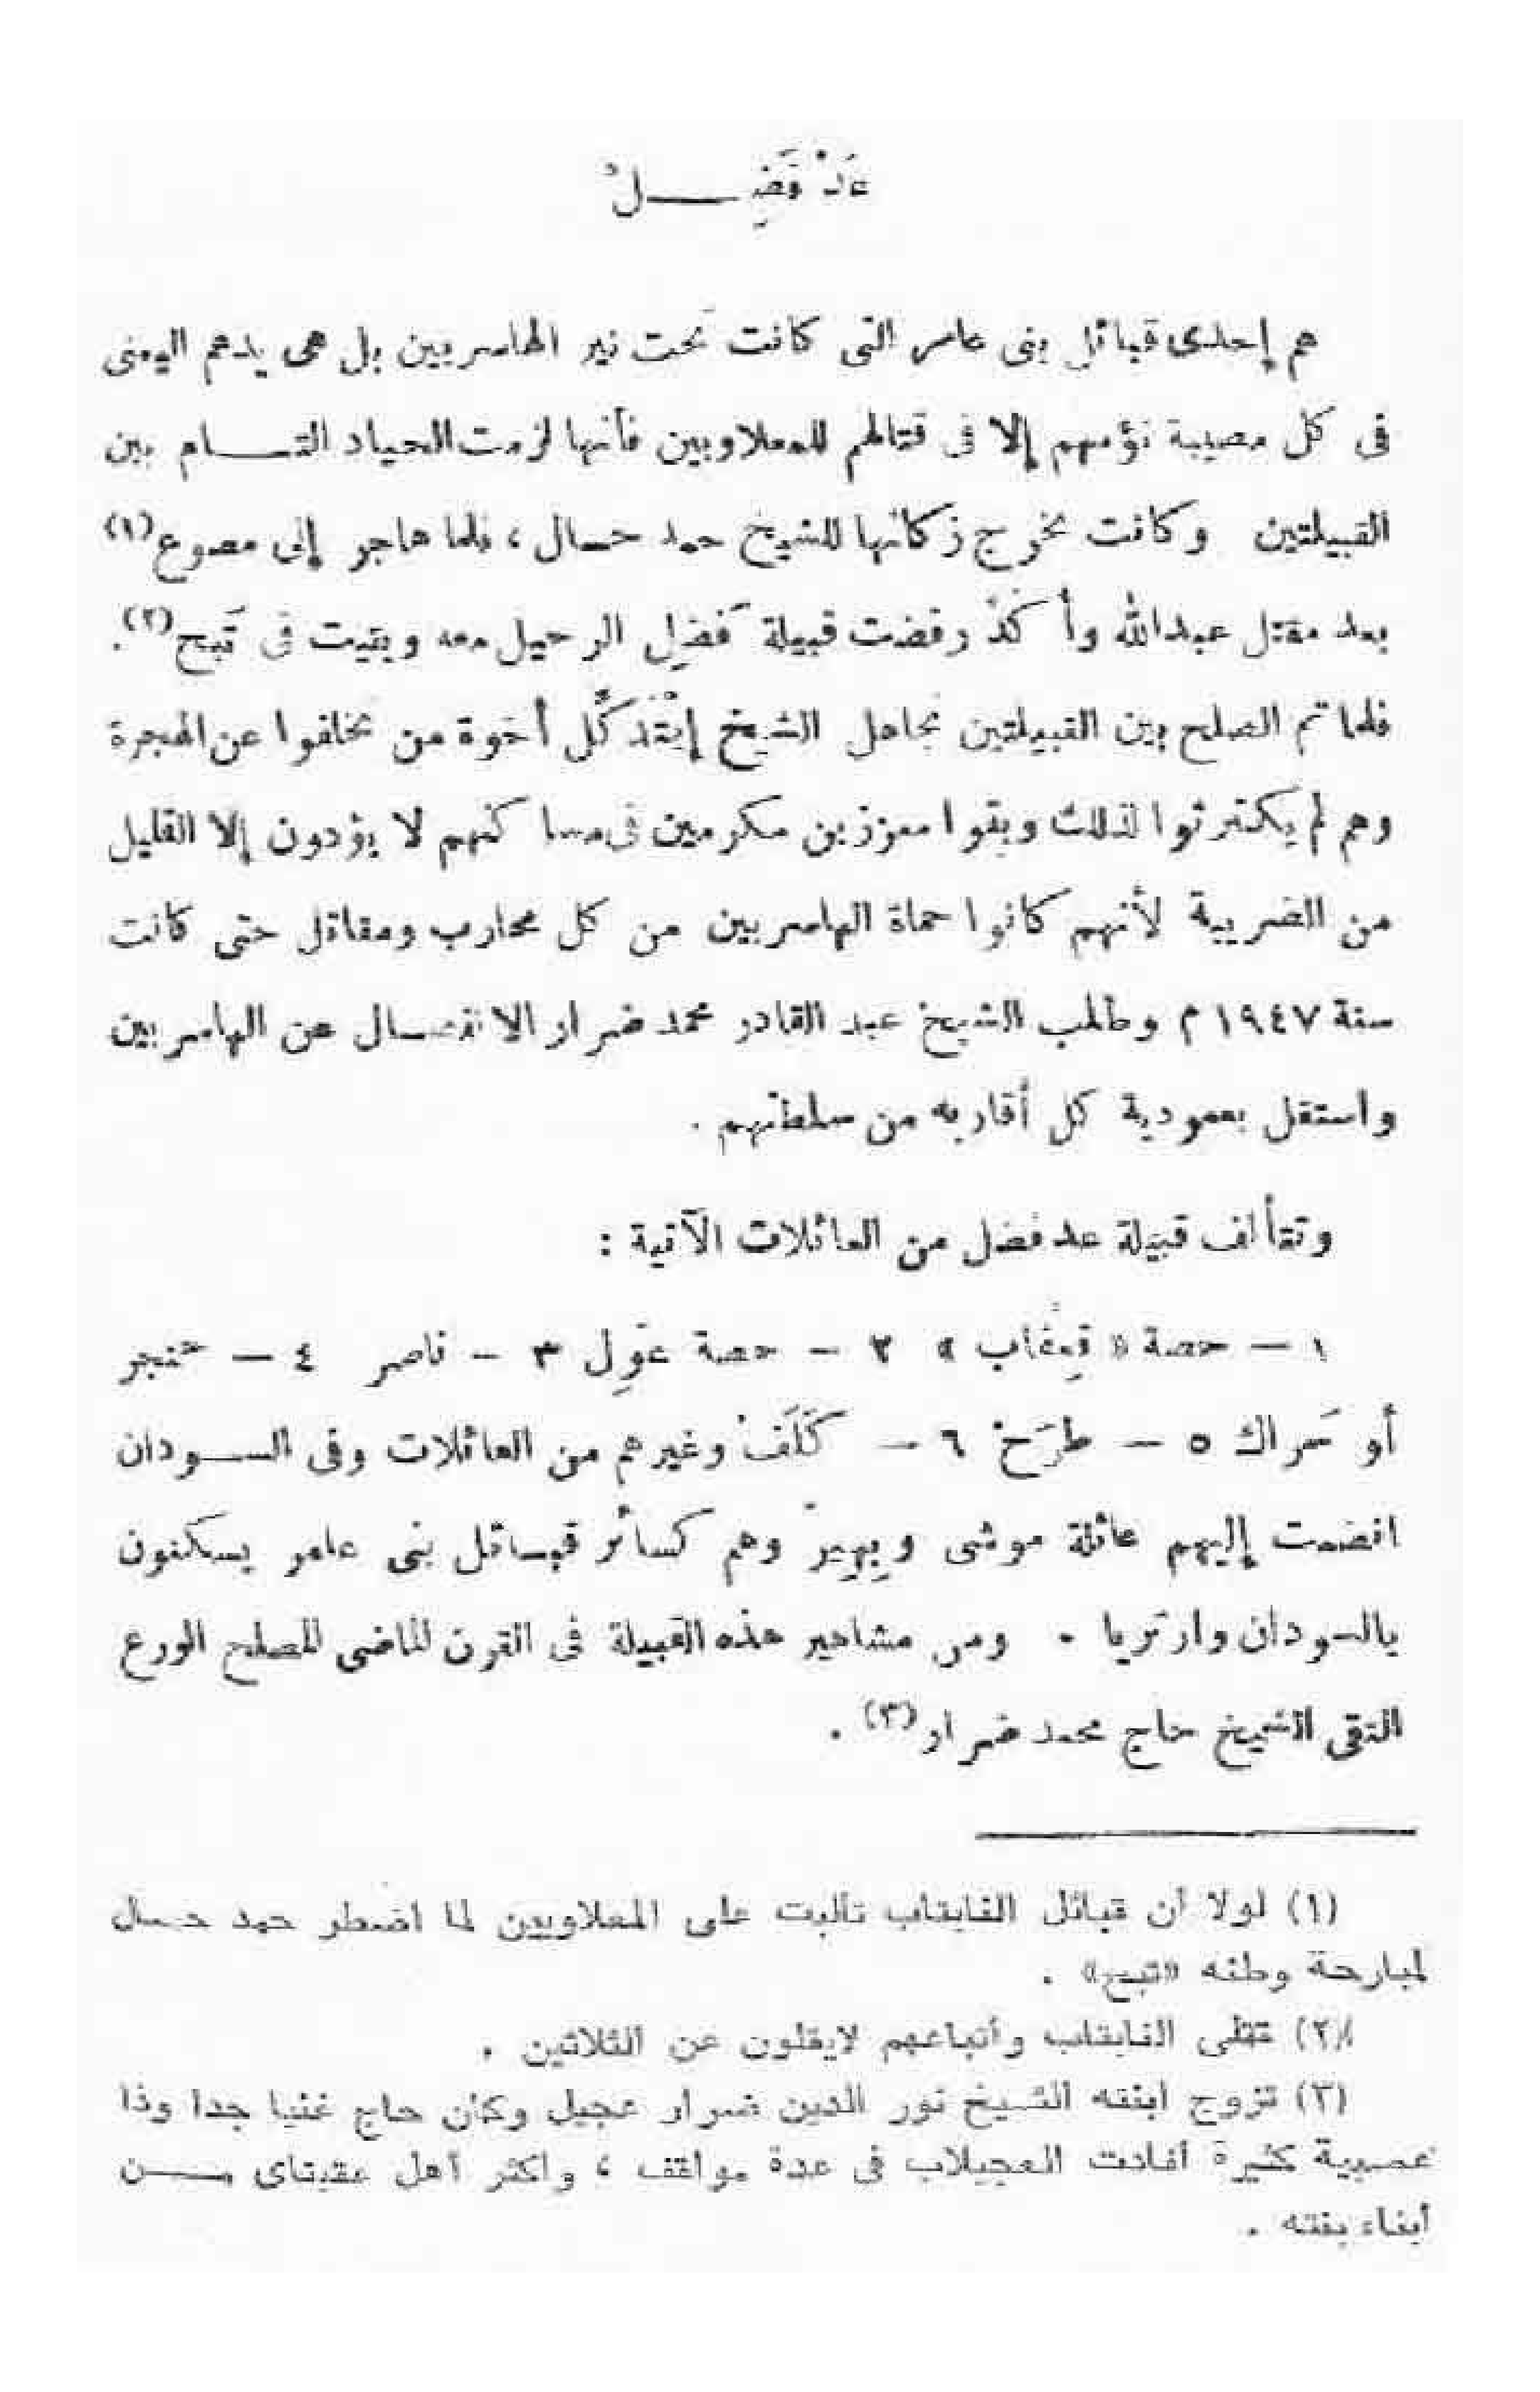 عَدْ فَضِــــلْ
هم إحدى قبائل بنى عامر التى كانت تحت نير الهاسريين بل هى يدهم اليمنى
فى كل مصيبة تؤمهم إلا فى قتالهم للمعلاويين فأنها لزمت الحياد التــام بين
القبيلتين وكانت تخرج زكاتها للشيخ حمد حسال ، فلما هاجر إلى مصوع (١)
بعد مقتل عبدالله وأكد رفضت قبيلة فَضِل الرحيل معه وبقيت فى تَبح (٢) .
فلما تم الصلح بين القبيلتين تجاهل الشيخ أخوة من تخلفوا عن الهجرة
وهم لم يكترثوا لذلك وبقوا معززين مكرمين فى مساكنهم لا يؤدون إلا القليل
من الضريبة لأنهم كانوا حماة الهاسريين من كل محارب ومقاتل حتى كانت
سنة ١٩٤٧ م وطلب الشيخ عبد القادر محمد ضرار الانفصــال عن الهاسريين
واستقل بعمودية كل أقاربه من سلطتهم .
وتتألف قبيلة عد فضل من العائلات الآتية :
١ — حصة « قِيفاب » ٢ — حصة عَوِل ٣ — ناصر ٤ — حنجر
أو سَمراك ٥ — طرَخ ٦ — كَلَفْ وغيرهم من العائلات وفى الســودان
انضمت إليهم عائلة موشى وبِهِيرّ وهم كسائر قبــائل بنى عامر يسكنون
بالسودان وارتريا . ومن مشاهير هذه القبيلة فى القرن الماضى المصلح الورع
التقى الشيخ حاج محمد ضرار (٣) .
(١) لولا أن قبائل النابتاب تألبت على المعلاويين لما اضطر حمد حسال
لمبارحة وطنه «تبح» .
(٢) قتلى النابتاب وأتباعهم لايقلون عن الثلاثين .
(٣) تزوج ابنته الشيخ نور الدين ضرار عجيل وكان حاج غنيا جدا وذا
عصبية كثيرة أفادت العجيلاب فى عدة مواقف ، وأكثر أهل عقيتاى مــن
أبناء بنته .